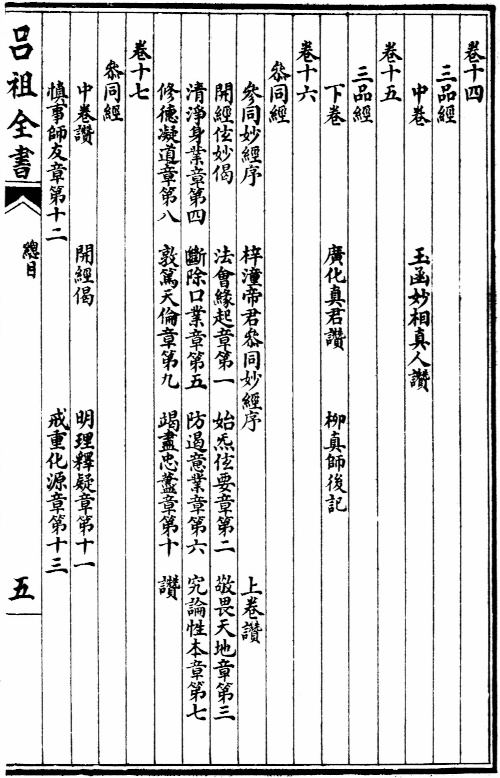 卷十四
三品經
中卷　玉函妙相真人讚
卷十五
三品經
下卷　廣化真君讚　柳真師後記
卷十六
叅同經
參同妙經序　梓潼帝君叅同妙經序　上卷讚
開經㢬妙偈　法會緣起章第一　始炁㢬要章第二　敬畏天地章第三
清淨身業章第四　斷除口業章第五　防遏意業章第六　究論性本章第七
修德凝道章第八　敦篤天倫章第九　竭盡忠藎章第十　讚
卷十七
叅同經
中卷讚　開經偈　明理釋疑章第十一
慎事師友章第十二　戒重化源章第十三
呂祖全書　總目　五